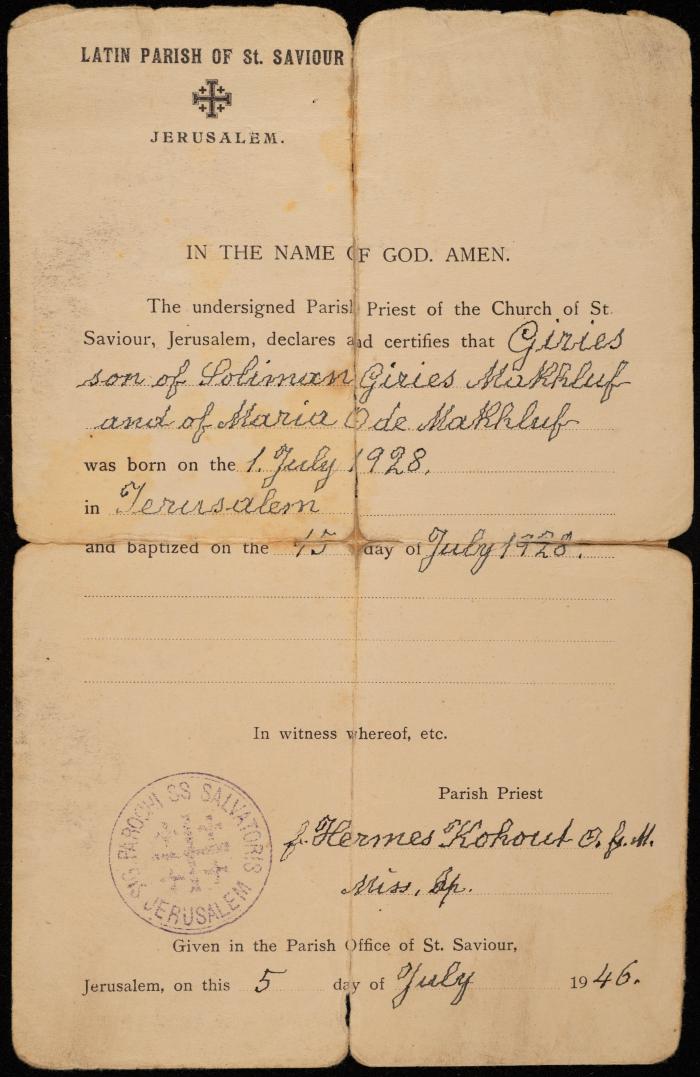 LATIN PARISH OF St. SAVIOUR
JERUSALEM.
IN THE NAME OF GOD. AMEN.
The undersigned Parish Priest of the Church of St.
Saviour, Jerusalem, declares and certifies that Giries
son of Soliman Giries Makhluf
and of Maria Ode Makhluf
was born on the 1. July 1928.
in Jerusalem
and baptized on the 15 day of July 1928.
In witness whereof, etc.
Parish Priest
f. Hermes Kohout O.F.M.
Miss. Ap.
SIG PAROCHI SS SALVATORIS
JERUSALEM
Given in the Parish Office of St. Saviour,
Jerusalem, on this 5 day of July 1946.